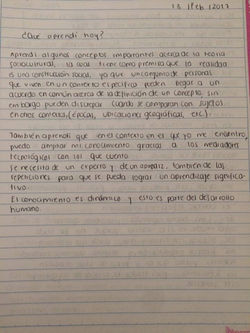 13 Feb 2017
¿Qué aprendí hoy?
Aprendí algunos conceptos importantes acerca de la teoría
sociocultural, la cual tiene como premisa que la realidad
es una construcción social, ya que un conjunto de personas
que viven en un contexto específico pueden llegar a un
acuerdo en común acerca de la definición de un concepto, sin
embargo pueden discrepar cuando se comparan con sujetos
en otros contextos, (épocas, ubicaciones geográficas, etc.).
También aprendí que en el contexto en el que yo me encuentro,
puedo ampliar mi conocimiento gracias a los mediadores
tecnológicos con los que cuento
Se necesita de un experto y de un aprendiz, también de las
repeticiones para que se pueda lograr un aprendizaje significa-
tivo.
El conocimiento es dinámico y esto es parte del desarrollo
humano.